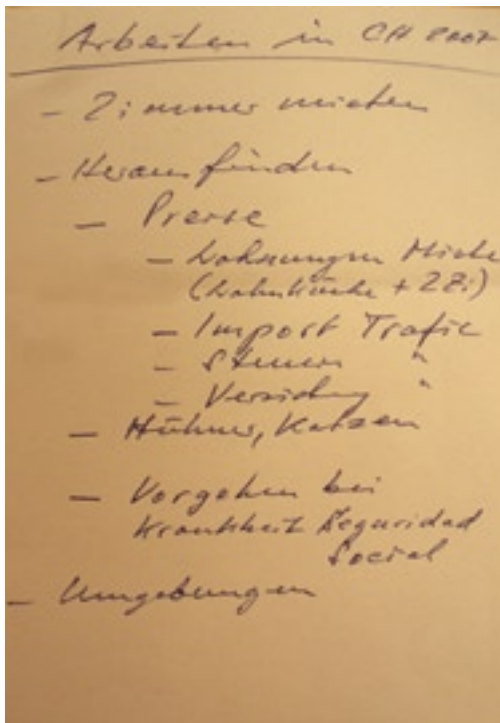 Arbeiten in CH 2007
- Zimmer mieten
- Herausfinden
- Preise
- Wohnungen Miete
(Wohnküche + 2Zi)
- Import Trafic
- Steuern "
- Versichg "
- Hühner, Katzen
- Vorgehen bei
Krankheit Seguridad
Social
- Umgebungen